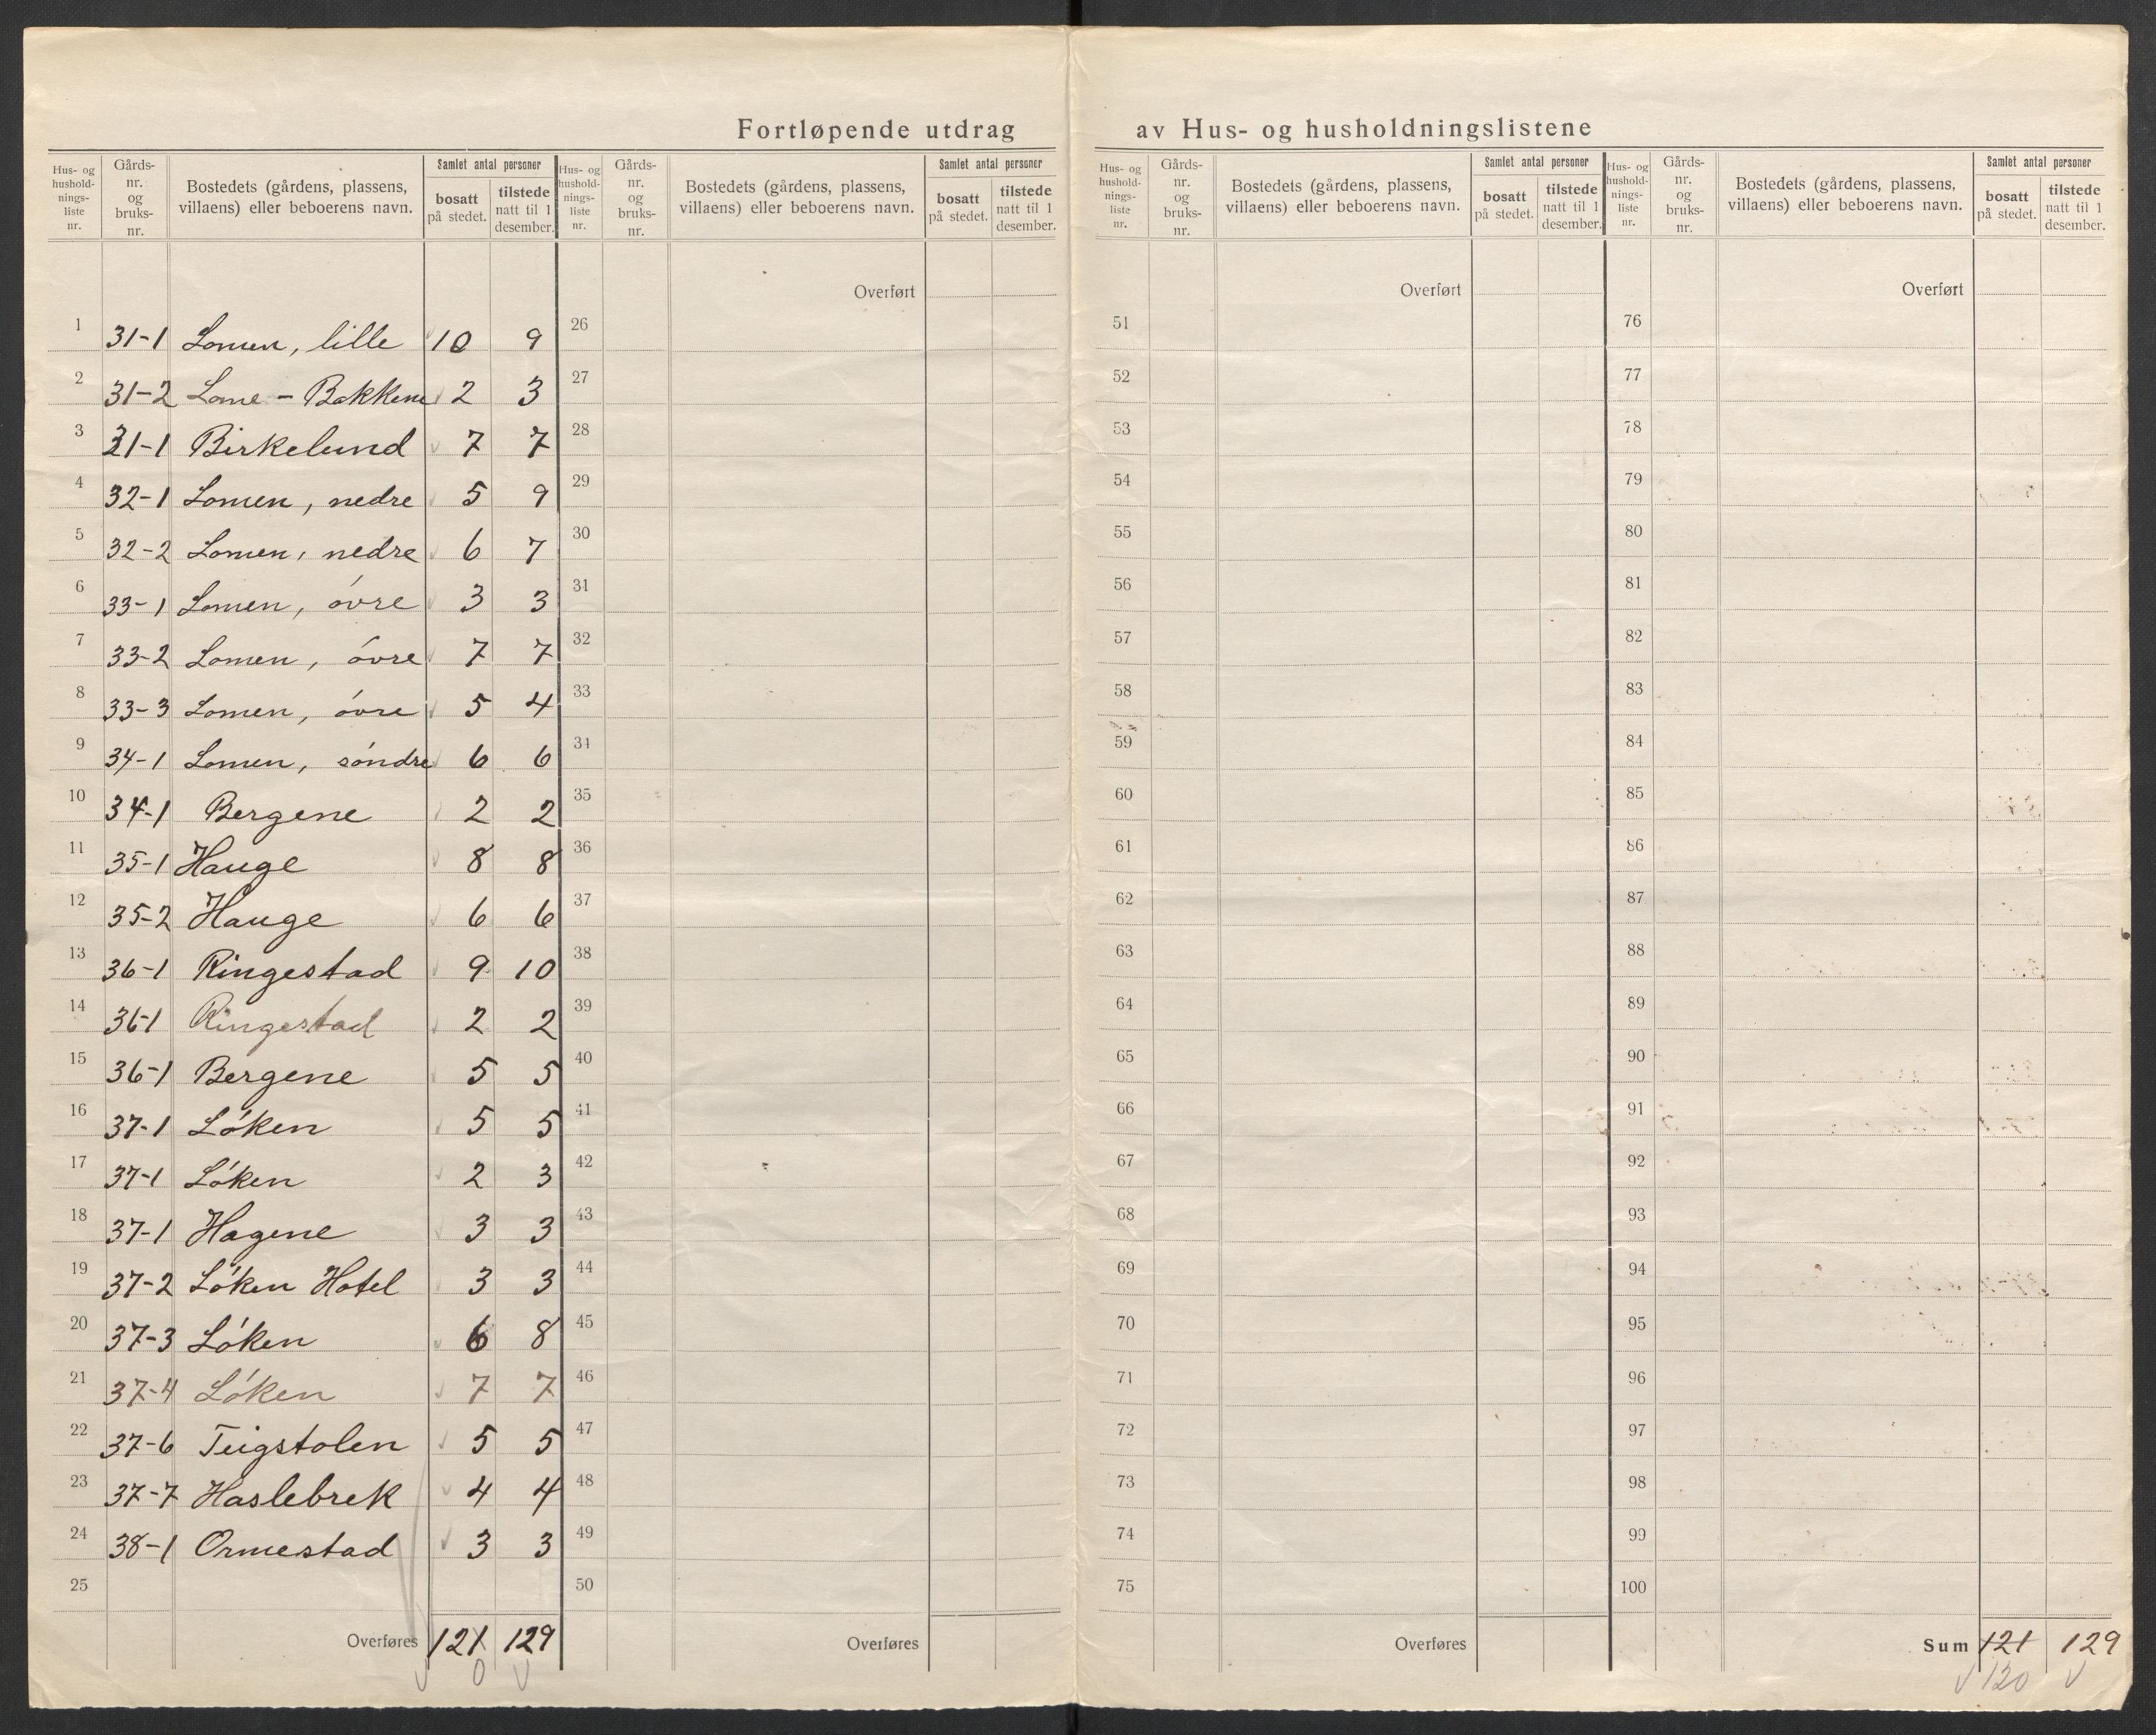 Fortløpende utdrag av Hus- og husholdningslistene
Hus- og hushold-nings-liste nr. Gårds-nr. og bruks-nr. Bostedets (gårdens, plassens, villaens) eller beboerens navn. Samlet antal personer bosatt på stedet. tilstede natt til 1 desember.
Hus- og hushold-nings-liste nr. Gårds-nr. og bruks-nr. Bostedets (gårdens, plassens, villaens) eller beboerens navn. Samlet antal personer bosatt på stedet. tilstede natt til 1 desember.
Hus- og hushold-nings-liste nr. Gårds-nr. og bruks-nr. Bostedets (gårdens, plassens, villaens) eller beboerens navn. Samlet antal personer bosatt på stedet. tilstede natt til 1 desember.
Hus- og hushold-nings-liste nr. Gårds-nr. og bruks-nr. Bostedets (gårdens, plassens, villaens) eller beboerens navn. Samlet antal personer bosatt på stedet. tilstede natt til 1 desember.
Overført Overført Overført
1 31-1 Lomen, lille 10 9 26 51 76
2 31-2 Lome - Bakkene 2 3 27 52 77
3 31-1 Birkelund 7 7 28 53 78
4 32-1 Lomen, nedre 5 9 29 54 79
5 32-2 Lomen, nedre 6 7 30 55 80
6 33-1 Lomen, óvre 3 3 31 56 81
7 33-2 Lomen, óvre 7 7 32 57 82
8 33-3 Lomen, óvre 5 4 33 58 83
9 34-1 Lomen, söndre 6 6 34 59 84
10 34-1 Bergene 2 2 35 60 85
11 35-1 Hauge 8 8 36 61 86
12 35-2 Hauge 6 6 37 62 87
13 36-1 Ringestad 9 10 38 63 88
14 36-1 Ringestad 2 2 39 64 89
15 36-1 Bergene 5 5 40 65 90
16 37-1 Lóken 5 5 41 66 91
17 37-1 Lóken 2 3 42 67 92
18 37-1 Hagene 3 3 43 68 93
19 37-2 Lóken Hotel 3 3 44 69 94
20 37-3 Lóken 6 8 45 70 95
21 37-4 Lóken 7 7 46 71 96
22 37-6 Teigstolen 5 5 47 72 97
23 37-7 Haslebrek 4 4 48 73 98
24 38-1 Ormestad 3 3 49 74 99
25 50 75 100
Overføres 121 129 Overføres Overføres Sum 121 129
0 120